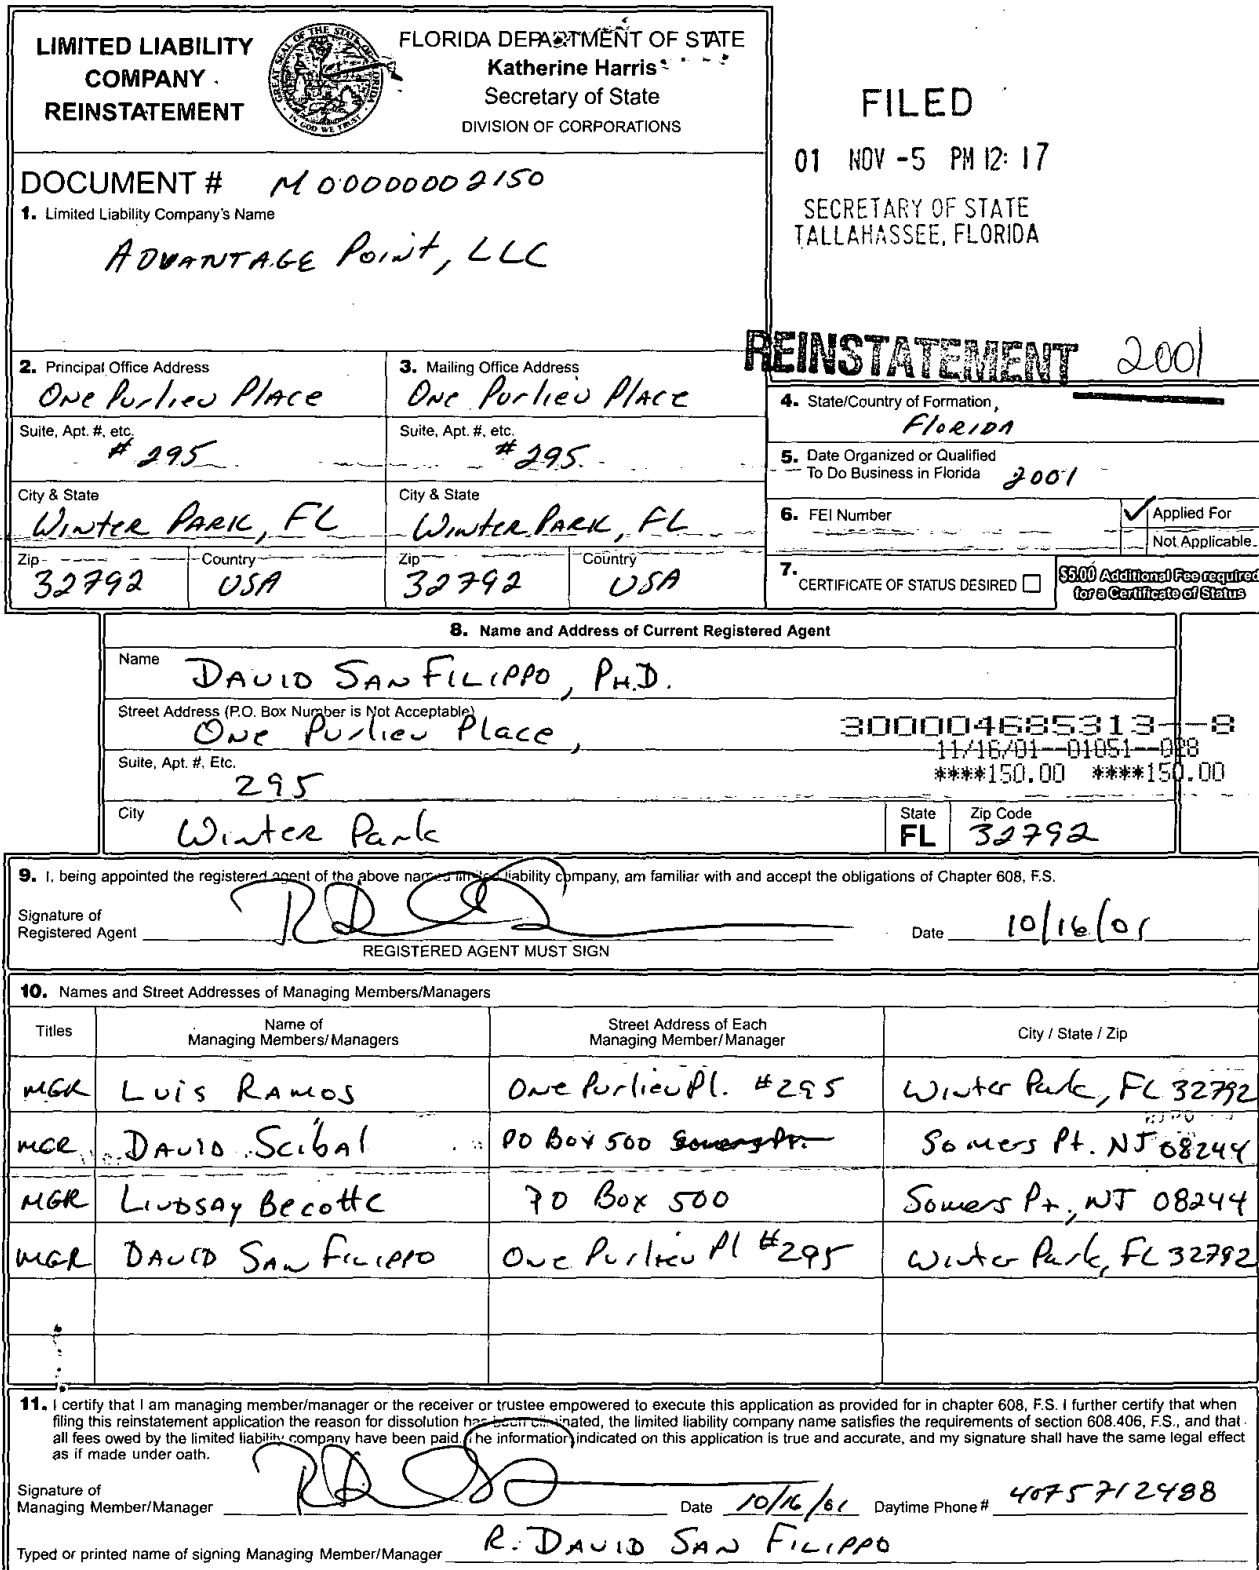 LIMITED LIABILITY
COMPANY
REINSTATEMENT
GREAT SEAL OF THE STATE OF FLORIDA
IN GOD WE TRUST
FLORIDA DEPARTMENT OF STATE
Katherine Harris
Secretary of State
DIVISION OF CORPORATIONS
FILED
01 NOV -5 PM 12: 17
SECRETARY OF STATE
TALLAHASSEE, FLORIDA
DOCUMENT # M00000002150
1. Limited Liability Company's Name
ADVANTAGE Point, LLC
REINSTATEMENT 2001
2. Principal Office Address
One Purlieu Place
Suite, Apt. #, etc.
# 295
City & State
Winter PARK, FL
Zip
32792
Country
USA
3. Mailing Office Address
One Purlieu Place
Suite, Apt. #, etc.
# 295
City & State
Winter PARK, FL
Zip
32792
Country
USA
4. State/Country of Formation
Florida
5. Date Organized or Qualified
To Do Business in Florida 2001
6. FEI Number
✓ Applied For
Not Applicable
7. CERTIFICATE OF STATUS DESIRED
$5.00 Additional Fee required
for a Certificate of Status
8. Name and Address of Current Registered Agent
Name
DAVID SAN FILIPPO, PH.D.
Street Address (P.O. Box Number is Not Acceptable)
One Purlieu Place,
Suite, Apt. #, Etc.
295
300004685313--8
11/16/01--01051--028
****150.00 ****150.00
City
Winter Park
State
FL
Zip Code
32792
9. I, being appointed the registered agent of the above named limited liability company, am familiar with and accept the obligations of Chapter 608, F.S.
Signature of
Registered Agent
Date 10/16/01
REGISTERED AGENT MUST SIGN
10. Names and Street Addresses of Managing Members/Managers
Titles
Name of
Managing Members/Managers
Street Address of Each
Managing Member/Manager
City / State / Zip
MGR Luis RAMOS One Purlieu Pl. #295 Winter Park, FL 32792
MGR DAVID Scibal PO Box 500 Somers Pt. Somers Pt. NJ 08244
MGR LINDSAY Becotte PO Box 500 Somers Pt., NJ 08244
MGR DAVID SAN FILIPPO One Purlieu Pl #295 Winter Park, FL 32792
11. I certify that I am managing member/manager or the receiver or trustee empowered to execute this application as provided for in chapter 608, F.S. I further certify that when
filing this reinstatement application the reason for dissolution has been eliminated, the limited liability company name satisfies the requirements of section 608.406, F.S., and that
all fees owed by the limited liability company have been paid. The information indicated on this application is true and accurate, and my signature shall have the same legal effect
as if made under oath.
Signature of
Managing Member/Manager
Date 10/16/01 Daytime Phone # 4075712488
Typed or printed name of signing Managing Member/Manager R. DAVID SAN FILIPPO